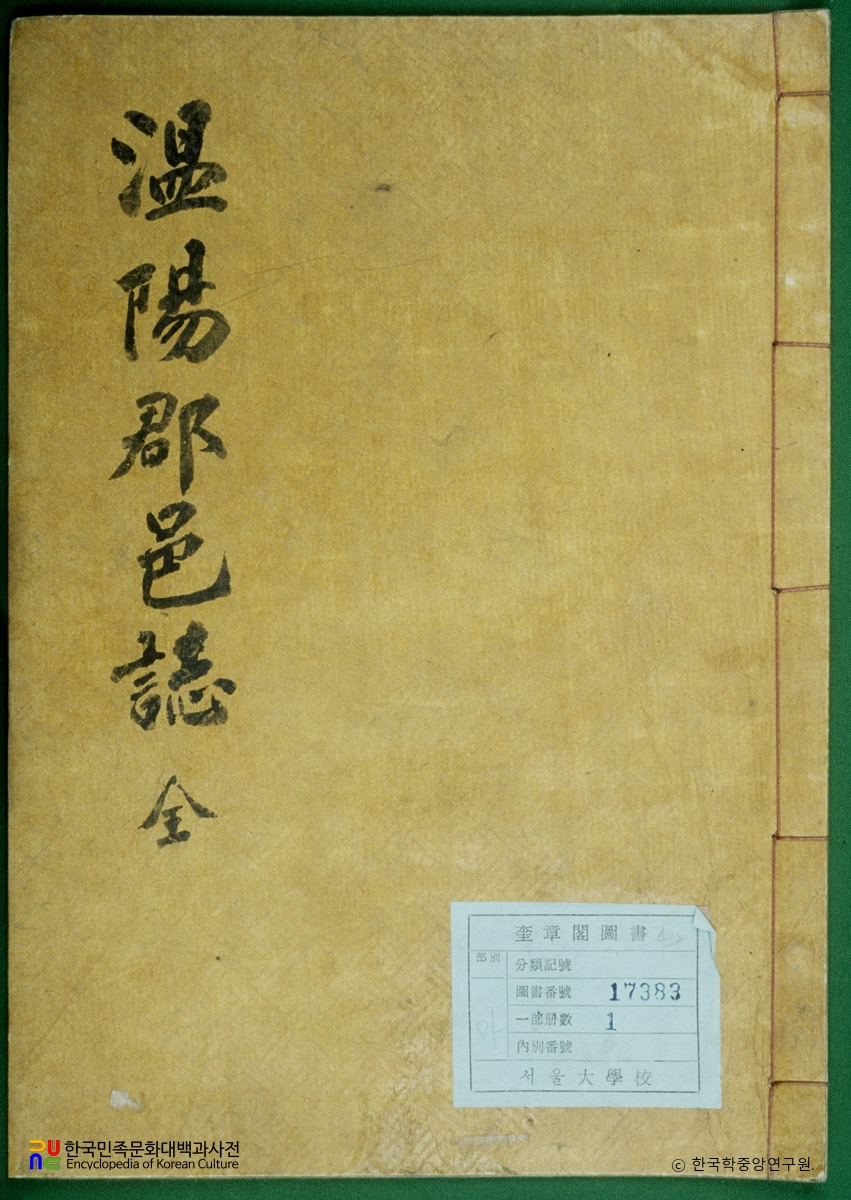 溫陽郡邑誌 全
奎章閣圖書
部別
分類記號
圖書番號 17383
一部册數 1
內別番號
서울大學校
한국민족문화대백과사전
Encyclopedia of Korean Culture
© 한국학중앙연구원.